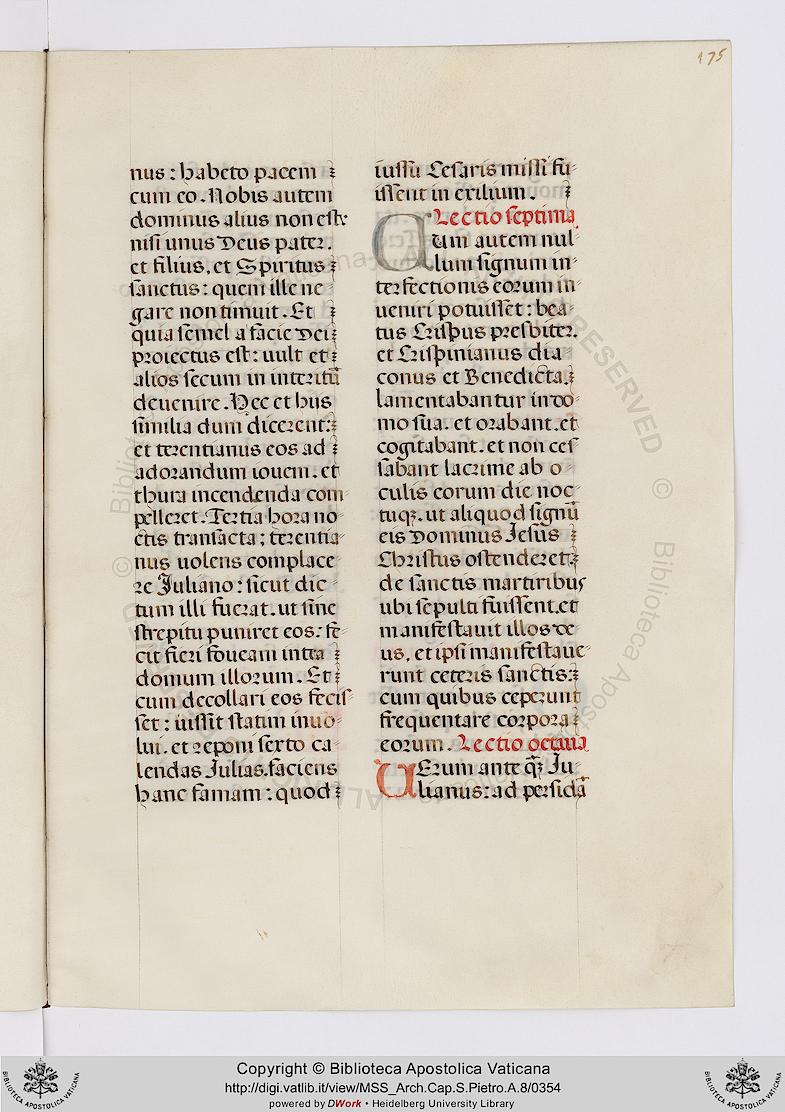 175
nus : habeto pacem
cum eo. Nobis autem
dominus alius non est
nisi unus Deus pater.
et filius. et Spiritus
sanctus : quem ille ne
gare non timuit. Et
quia semel a facie Dei
proiectus est : uult et
alios secum in interitū
deuenire. Hec et his
similia dum dicerent :
et terentianus eos ad
adorandum iouem. et
thura incendenda com
pelleret. Tertia hora no
ctis transacta ; terentia
nus uolens complace
re Juliano : sicut dic
tum illi fuerat. ut sine
strepitu puniret eos : fe
cit fieri foueam intra
domum illorum. Et
cum decollari eos fecis
set : iussit statim inuo
lui. et reponi sexto ca
lendas Julias. faciens
hanc famam : quod
iussu Cesaris missi fu
issent in exilium.
Lectio septima
Cum autem nul
lum signum in
terfectionis eorum in
ueniri potuisset : bea
tus Crispus presbiter.
et Crispinianus dia
conus et Benedicta.
lamentabantur in do
mo sua. et orabant. et
cogitabant. et non ces
sabant lacrime ab o
culis eorum die noc
tuqꝫ. ut aliquod signū
eis Dominus Jesus
Christus ostenderet
de sanctis martiribus
ubi sepulti fuissent. et
manifestauit illos de
us. et ipsi manifestaue
runt ceteris sanctis :
cum quibus ceperunt
frequentare corpora
eorum. Lectio octaua
UErum ante q̄ꝫ Ju
lianus : ad persidā
Copyright © Biblioteca Apostolica Vaticana
http://digi.vatlib.it/view/MSS_Arch.Cap.S.Pietro.A.8/0354
powered by DWork • Heidelberg University Library
BIBLIOTECA APOSTOLICA VATICANA
BIBLIOTECA APOSTOLICA VATICANA